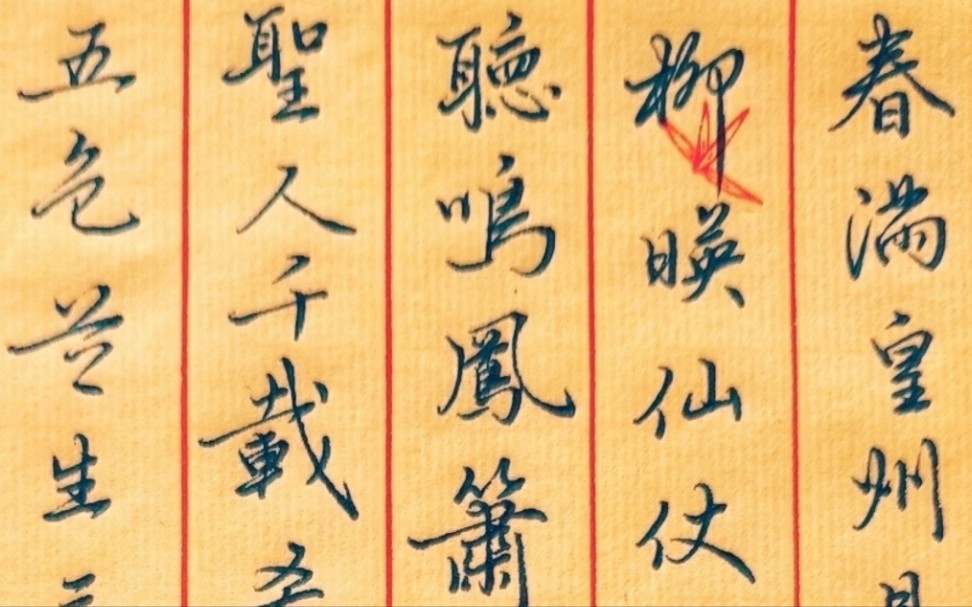 春满皇州
柳暎仙仗
聽鳴鳳簫
聖人千載
五色芝生